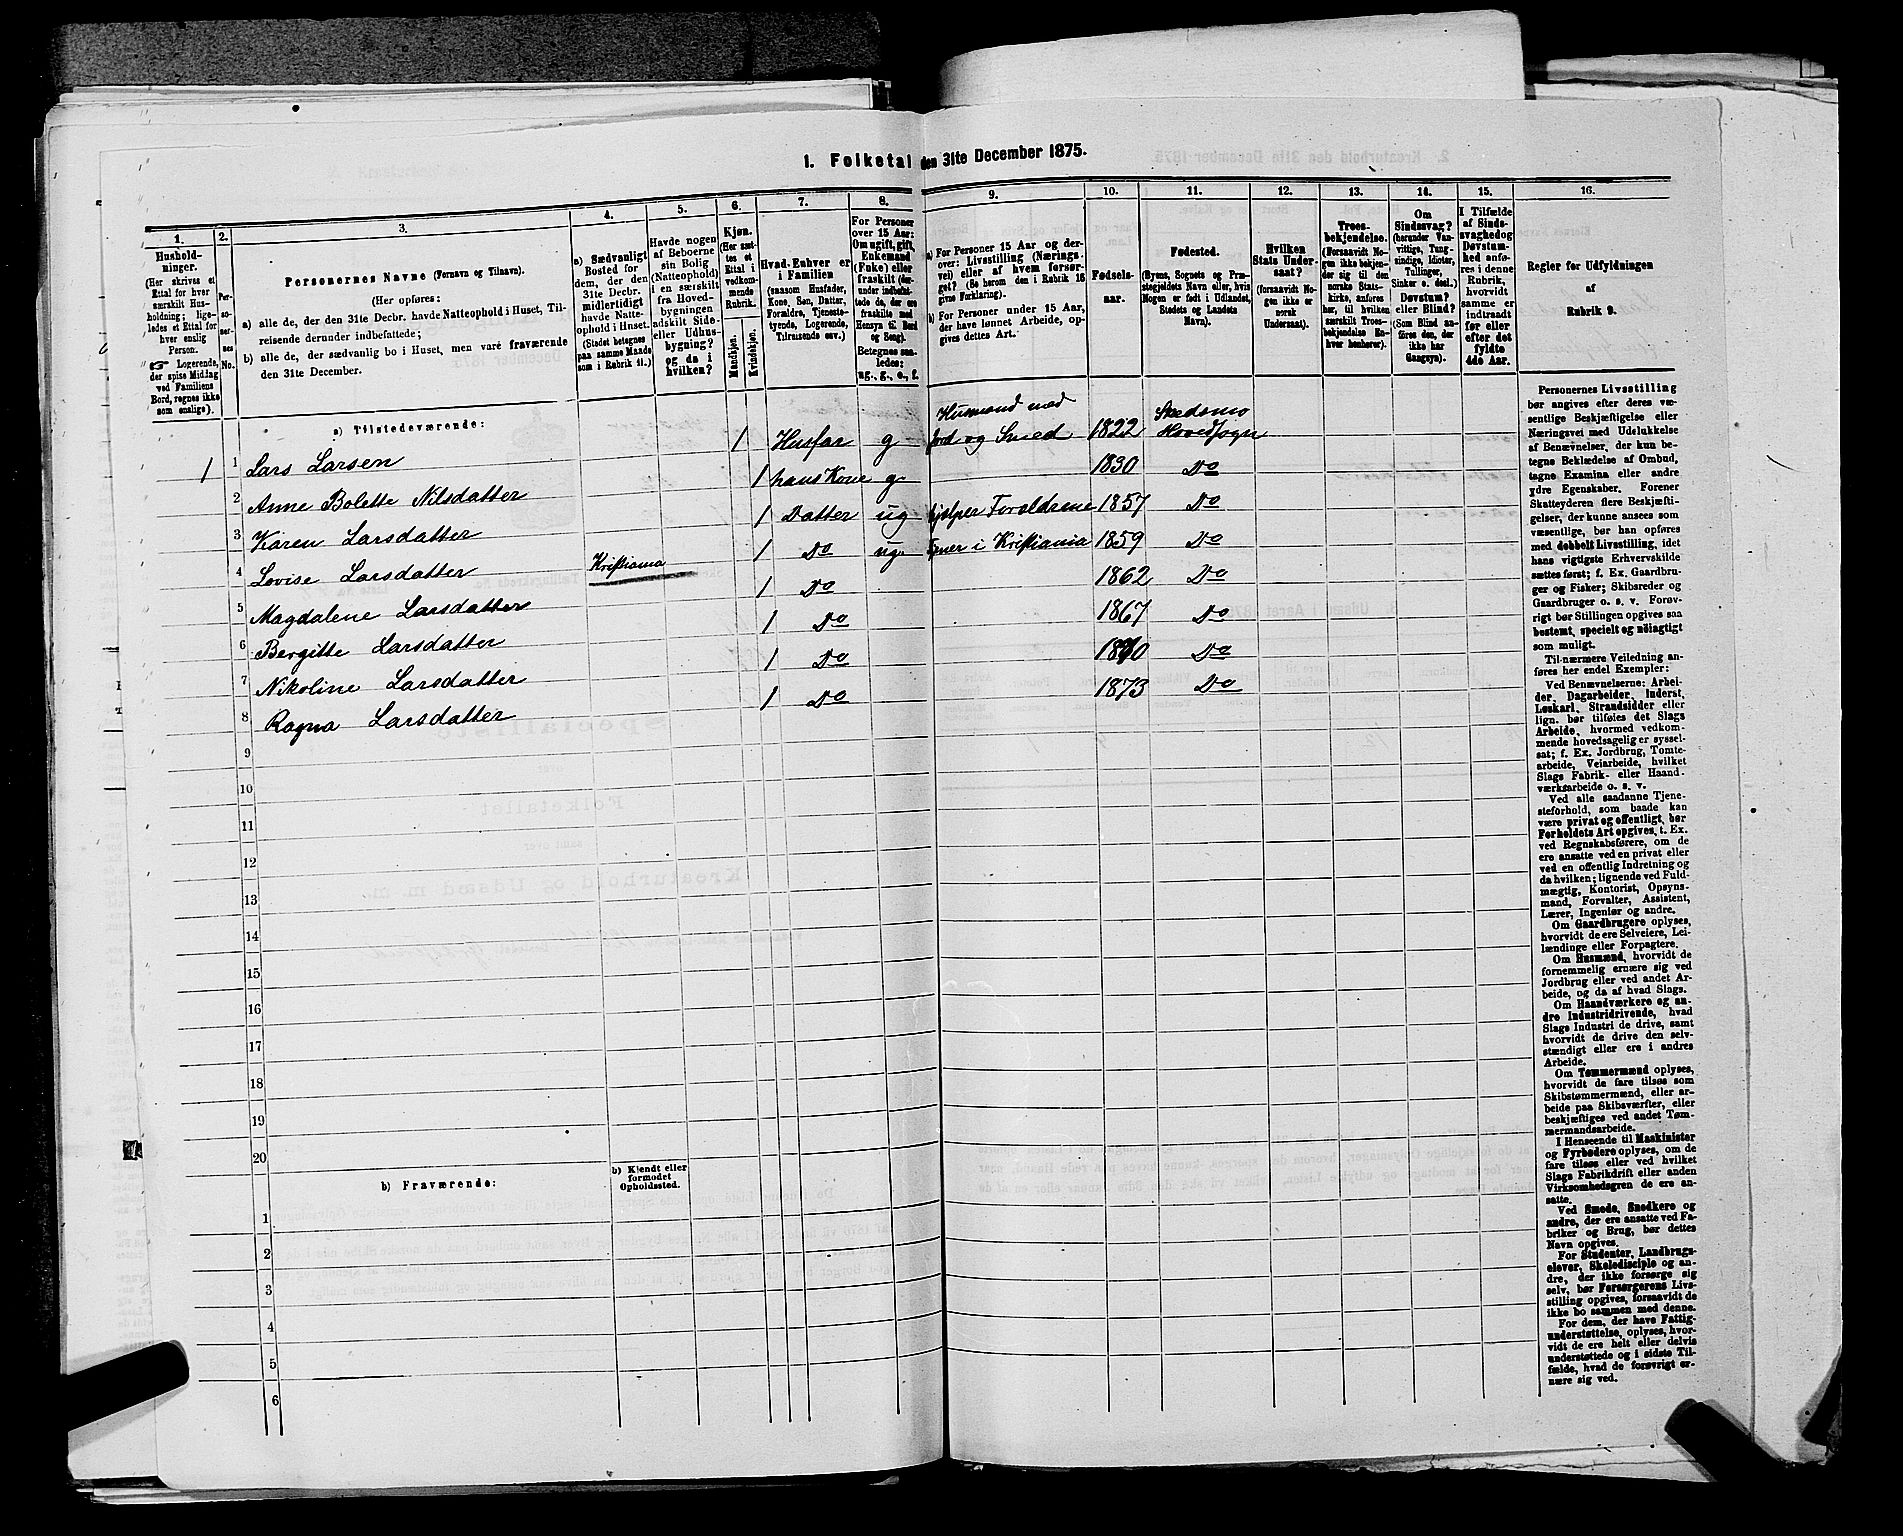 1. Folketal den 31te December 1875.
1. 2. 3. 4. 5. 6. 7. 8. 9. 10. 11. 12. 13. 14. 15. 16.
Hushold-
ninger.
(Her skrives et
Ettal for hver
særskilt Hus-
holdning; lige-
ledes et Ettal for
hver enslig
Person.
☞ Logerende,
der spise Middag
ved Familiens
Bord, regnes ikke
som enslige).
Per-
so-
ner-
nes
No.
Personernes Navne (Fornavn og Tilnavn).
(Her opføres:
a) alle de, der den 31te Decbr. havde Natteophold i Huset, Til-
reisende derunder indbefattede;
b) alle de, der sædvanlig bo i Huset, men vare fraværende
den 31te December.
a) Sædvanligt
Bosted for
dem, der den
31te Decbr.
midlertidigt
havde Natte-
ophold i Huset.
(Stedet betegnes
paa samme Maade
som i Rubrik 11.)
Havde nogen
af Beboerne
sin Bolig
(Natteophold)
i en særskilt
fra Hoved-
bygningen
adskilt Side-
eller Udhus-
bygning?
og da i
hvilken?
Kjøn.
(Her sæt-
tes et
Ettal i
vedkom-
mende
Rubrik.
Mandkjøn.
Kvindekjøn.
Hvad Enhver er
i Familien
(saasom Husfader,
Kone, Søn, Datter,
Forældre, Tjeneste-
tyende, Logerende,
Tilreisende osv.)
For Personer
over 15 Aar:
Om ugift, gift,
Enkemand
(Enke) eller
fraskilt (der-
under indbefat-
tede de, der ere
fraskilte med
Hensyn til Bord
og Seng).
Betegnes saa-
ledes:
ug., g., e., f.
a) For Personer 15 Aar og der-
over: Livsstilling (Nærings-
vei) eller af hvem forsør-
get? (Se herom den i Rubrik 16
givne Forklaring).
b) For Personer under 15 Aar,
der have lønnet Arbeide, op-
gives dettes Art.
Fødsels-
aar.
Fødested.
(Byens, Sognets og Præ-
stegjeldets Navn eller, hvis
Nogen er født i Udlandet,
Stedets og Landets
Navn).
Hvilken
Stats Under-
saat?
(forsaavidt No-
gen ikke er
norsk
Undersaat).
Troes-
bekjendelse.
(Forsaavidt No-
gen ikke bekjen-
der sig til den
norske Stats-
kirke, anføres
her, til hvilken
særskilt Troes-
bekjendelse En-
hver henhører).
Om
Sindssvag?
(herunder Van-
vittige, Tung-
sindige, Idioter,
Tullinger,
Sinker o. desl.)
Døvstum?
eller Blind?
(Som Blind an-
føres den, der
ikke har
Gangsyn).
I Tilfælde
af Sinds-
svaghed og
Døvstum-
hed anfø-
res i denne
Rubrik,
hvorvidt
samme er
indtraadt
før eller
efter det
fyldte
4de Aar.
Regler for Udfyldningen
af
Rubrik 9.
a) Tilstedeværende:
1 1 Lars Larsen 1 Husfar g Husmand med Jord og Smed 1822 Skedsmo Hovedsogn
2 Anne Bolette Nilsdatter 1 hans Kone g 1830 Do
3 Karen Larsdatter 1 Datter ug hjælper Forældrene 1857 Do
4 Lovise Larsdatter Kristiania 1 Do ug Tjener i Kristiania 1859 Do
5 Magdalene Larsdatter 1 Do 1862 Do
6 Bergitte Larsdatter 1 Do 1867 Do
7 Nikoline Larsdatter 1 Do 1870 Do
8 Ragna Larsdatter 1 Do 1873 Do
9
10
11
12
13
14
15
16
17
18
19
20
b) Fraværende:
b) Kjendt eller
formodet
Opholdssted.
1
2
3
4
5
6
Personernes Livsstilling
bør angives efter deres væ-
sentlige Beskjæftigelse eller
Næringsvei med Udelukkelse
af Benævnelser, der kun be-
tegne Beklædelse af Ombud,
tagne Examina eller andre
ydre Egenskaber. Forener
Skatteyderen flere Beskjæfti-
gelser, der kunne ansees som
væsentlige, bør han opføres
med dobbelt Livsstilling, idet
hans vigtigste Erhvervskilde
sættes først; f. Ex. Gaardbru-
ger og Fisker; Skibsreder og
Gaardbruger o. s. v. Forøv-
rigt bør Stillingen opgives saa
bestemt, specielt og nøiagtigt
som muligt.
Til nærmere Veiledning an-
føres her endel Exempler:
Ved Benævnelserne: Arbei-
der, Dagarbeider, Inderst,
Løskarl, Strandsidder eller
lign. bør tilføies det Slags
Arbeide, hvormed vedkom-
mende hovedsagelig er syssel-
sat; f. Ex. Jordbrug, Tomte-
arbeide, Veiarbeide, hvilket
Slags Fabrik- eller Haand-
værksarbeide o. s. v.
Ved alle saadanne Tjene-
steforhold, som baade kan
være privat og offentligt, bør
Forholdets Art opgives, t. Ex.
ved Regnskabsførere, om de
ere ansatte ved en privat eller
ved en offentlig Indretning og
da hvilken; lignende ved Fuld-
mægtig, Kontorist, Opsyns-
mand, Forvalter, Assistent,
Lærer, Ingeniør og andre.
Om Gaardbrugere oplyses,
hvorvidt de ere Selveiere, Lei-
lændinge eller Forpagtere.
Om Husmænd, hvorvidt de
fornemmelig ernære sig ved
Jordbrug eller ved andet Ar-
beide, og da af hvad Slags.
Om Haandværkere og an-
dre Industridrivende, hvad
Slags Industri de drive, samt
hvorvidt de drive den selv-
stændigt eller ere i andres
Arbeide.
Om Tømmermænd oplyses,
hvorvidt de fare tilsøs som
Skibstømmermænd, eller ar-
beide paa Skibsværfter, eller
beskjæftiges ved andet Tøm-
mermandsarbeide.
I Henseende til Maskinister
og Fyrbødere oplyses, om de
fare tilsøs eller ved hvilket
Slags Fabrikdrift eller anden
Virksomhedsgren de ere an-
satte.
Ved Smede, Snedkere og
andre, der ere ansatte ved Fa-
briker og Brug, bør dettes
Navn opgives.
For Studenter, Landbrugs-
elever, Skoledisciple og an-
dre, der ikke forsørge sig
selv, bør Forsørgerens Livs-
stilling opgives, forsaavidt de
ikke bo sammen med denne.
For dem, der have Fattig-
understøttelse, oplyses, hvor-
vidt de ere helt eller delvis
understøttede og i sidste Til-
fælde, hvad de forøvrigt er-
nære sig ved.